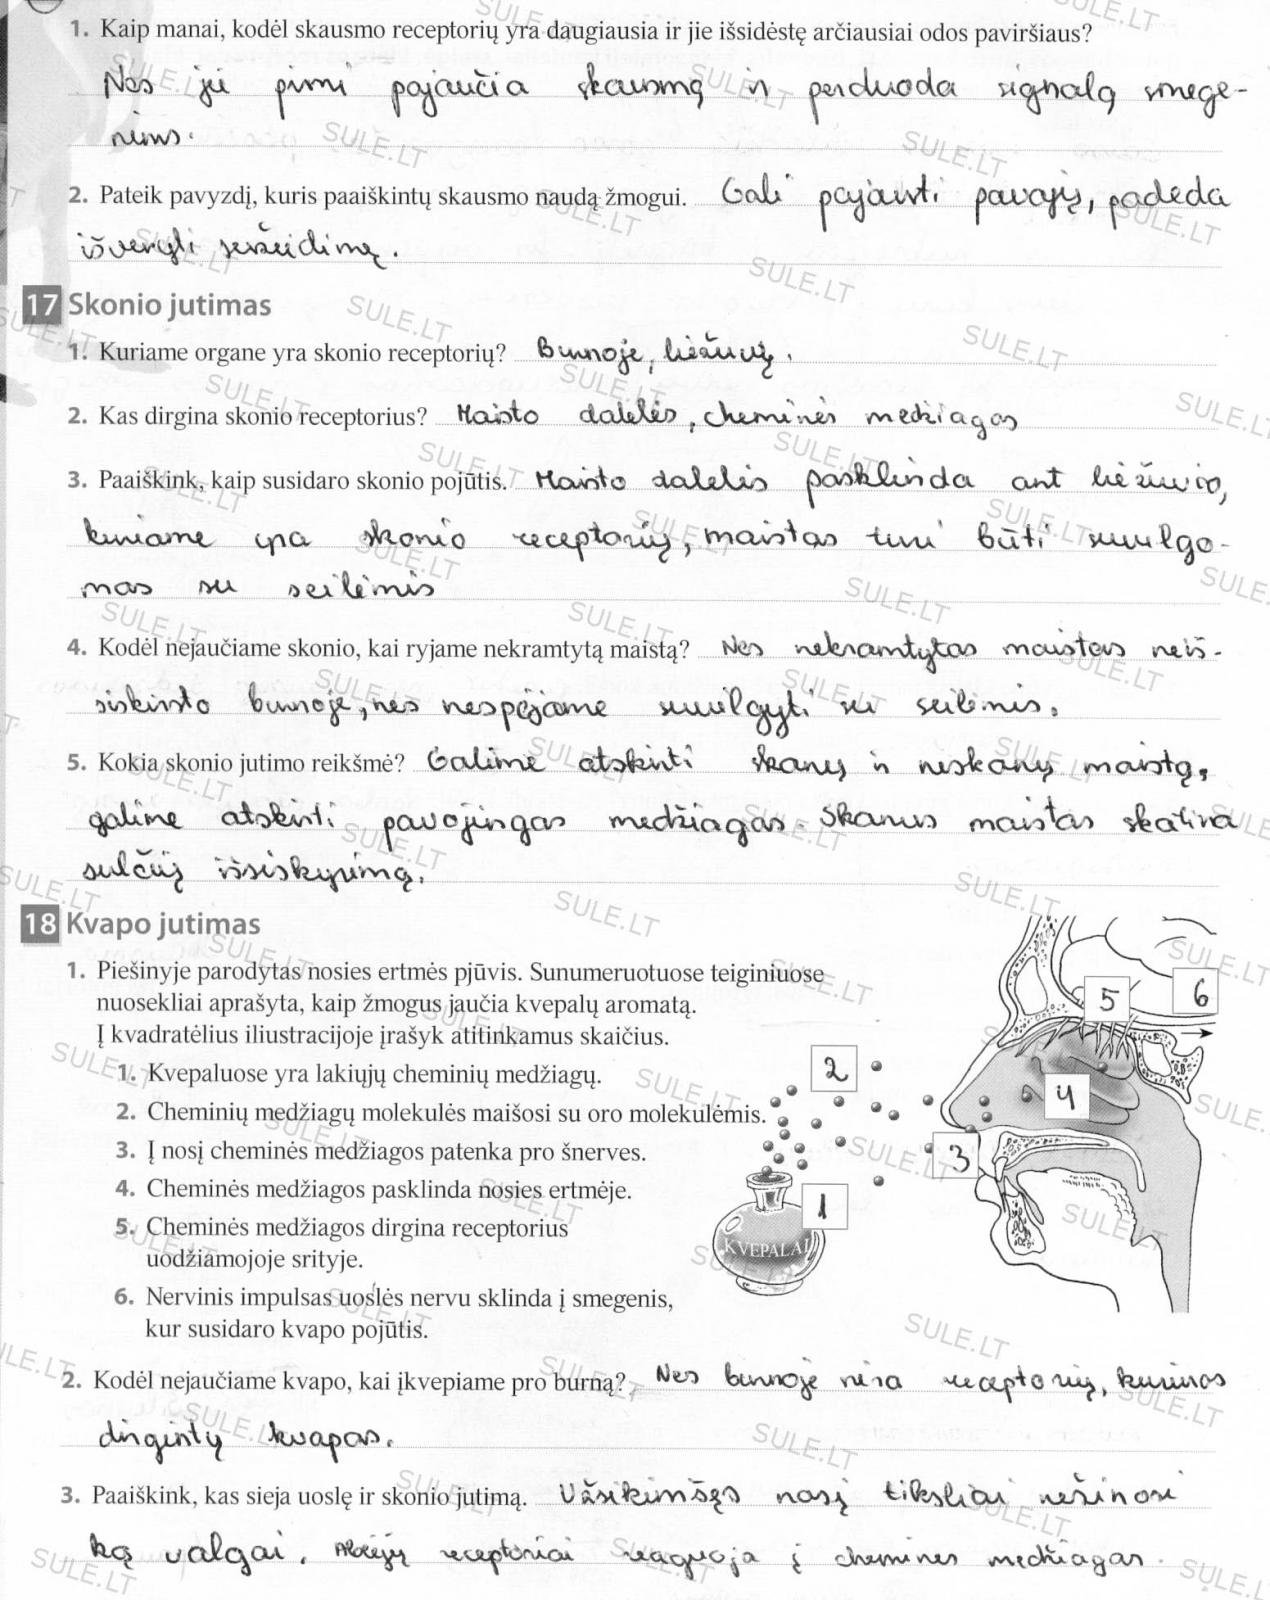 1. Kaip manai, kodėl skausmo receptorių yra daugiausia ir jie išsidėstę arčiausiai odos paviršiaus?
Nes jie pirmi pajaučia skausmą ir perduoda signalą smege-
nims.
2. Pateik pavyzdį, kuris paaiškintų skausmo naudą žmogui. Gali pajausti pavojų, padeda
išvengti sužeidimų.
17 Skonio jutimas
1. Kuriame organe yra skonio receptorių? Burnoje, liežuvų.
2. Kas dirgina skonio receptorius? Maisto dalelės, cheminės medžiagos
3. Paaiškink, kaip susidaro skonio pojūtis. Maisto dalelės pasklinda ant liežuvio,
kuriame yra skonio receptorių, maistas turi būti suvilgo-
mas su seilėmis
4. Kodėl nejaučiame skonio, kai ryjame nekramtytą maistą? Nes nekramtytas maistas neiš-
siskirsto burnoje, nes nespėjame suvilgyti su seilėmis.
5. Kokia skonio jutimo reikšmė? Galime atskirti skanų ir neskanų maistą,
galime atskirti pavojingas medžiagas. Skanus maistas skatina
sulčių išsiskyrimą.
18 Kvapo jutimas
1. Piešinyje parodytas nosies ertmės pjūvis. Sunumeruotuose teiginiuose
nuosekliai aprašyta, kaip žmogus jaučia kvepalų aromatą.
Į kvadratėlius iliustracijoje įrašyk atitinkamus skaičius.
1. Kvepaluose yra lakiųjų cheminių medžiagų.
2. Cheminių medžiagų molekulės maišosi su oro molekulėmis.
3. Į nosį cheminės medžiagos patenka pro šnerves.
4. Cheminės medžiagos pasklinda nosies ertmėje.
5. Cheminės medžiagos dirgina receptorius
uodžiamojoje srityje.
6. Nervinis impulsas uoslės nervu sklinda į smegenis,
kur susidaro kvapo pojūtis.
5
6
2
4
3
1
KVEPALAI
2. Kodėl nejaučiame kvapo, kai įkvepiame pro burną? Nes burnoje nėra receptorių, kuriuos
dirgintų kvapas.
3. Paaiškink, kas sieja uoslę ir skonio jutimą. Užsikimšęs nosį tiksliai nežinosi
ką valgai. Abiejų receptoriai reaguoja į chemines medžiagas.
SULE.LT